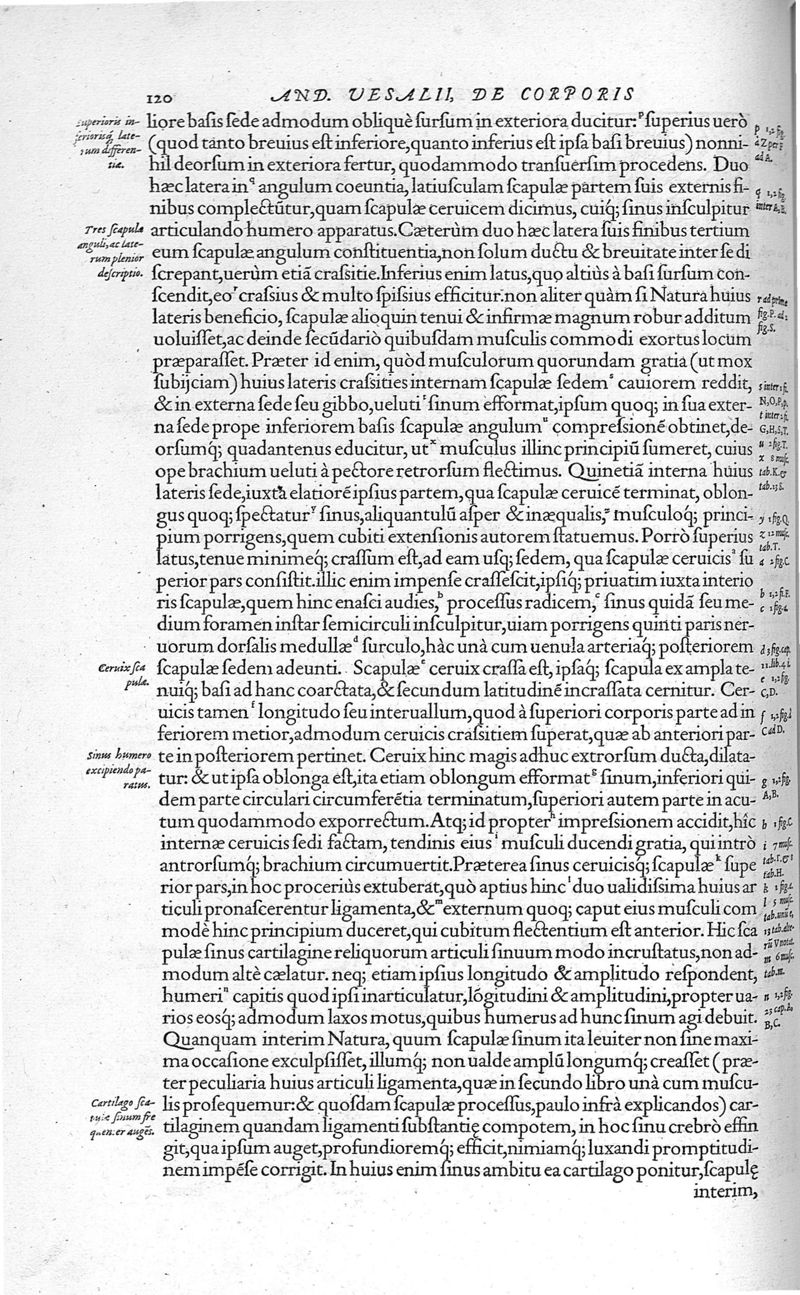 120 AND. VESALII, DE CORPORIS
ſuperioris in-
ferioriſq́; late-
rum differen-
tiæ.
Tres ſcapulæ
anguli, ac late-
rum plenior
deſcriptio.
Ceruix ſca
pulæ.
Sinus humero
excipiendo pa-
ratus.
Cartilago ſca-
pulæ ſinum fre
quenter augẽs.
liore baſis ſede admodum obliquè ſurſum in exteriora ducitur:ᵖ ſuperius uerò
(quod tanto breuius eſt inferiore,quanto inferius eſt ipſa baſi breuius) nonni-
hil deorſum in exteriora fertur, quodammodo tranſuerſim procedens. Duo
hæc latera in q angulum coeuntia, latiuſculam ſcapulæ partem ſuis externis fi-
nibus complectũtur,quam ſcapulæ ceruicem dicimus, cuiq́; ſinus inſculpitur
articulando humero apparatus.Cæterùm duo hæc latera ſuis finibus tertium
eum ſcapulæ angulum conſtituentia,non ſolum ductu & breuitate inter ſe di
ſcrepant,uerùm etiã craſsitie.Inferius enim latus,quo altiùs à baſi ſurſum con-
ſcendit,eoʳ craſsius & multo ſpiſsius efficitur:non aliter quàm ſi Natura huius
lateris beneficio, ſcapulæ alioquin tenui & infirmæ magnum robur additum
uoluiſſet,ac deinde ſecũdariò quibuſdam muſculis commodi exortus locum
præparaſſet. Præter id enim, quòd muſculorum quorundam gratia (ut mox
ſubijciam) huius lateris craſsities internam ſcapulæ ſedemˢ cauiorem reddit,
& in externa ſede ſeu gibbo,uelutiᵗ ſinum efformat,ipſum quoq; in ſua exter-
na ſede prope inferiorem baſis ſcapulæ angulumᵘ compreſsionẽ obtinet,de-
orſumq́; quadantenus educitur, utˣ muſculus illinc principiũ ſumeret, cuius
ope brachium ueluti à pectore retrorſum flectimus. Quinetiã interna huius
lateris ſede,iuxtà elatiorẽ ipſius partem,qua ſcapulæ ceruicẽ terminat, oblon-
gus quoq; ſpectaturʸ ſinus,aliquantulũ aſper & inæqualis,ᶻ muſculoq́; princi-
pium porrigens,quem cubiti extenſionis autorem ſtatuemus. Porrò ſuperius
latus,tenue minimeq́; craſſum eſt,ad eam uſq; ſedem, qua ſcapulæ ceruicisᵃ ſu
perior pars conſiſtit.illic enim impenſe craſſeſcit,ipſiq́; priuatim iuxta interio
ris ſcapulæ,quem hinc enaſci audies,ᵇ proceſſus radicem,ᶜ ſinus quidã ſeu me-
dium foramen inſtar ſemicirculi inſculpitur,uiam porrigens quinti paris ner-
uorum dorſalis medullæᵈ ſurculo,hàc unà cum uenula arteriaq́; poſteriorem
ſcapulæ ſedem adeunti. Scapulæᵉ ceruix craſſa eſt, ipſaq́; ſcapula ex ampla te-
nuiq́; baſi ad hanc coarctata,& ſecundum latitudinẽ incraſſata cernitur. Cer-
uicis tamenᶠ longitudo ſeu interuallum,quod à ſuperiori corporis parte ad in
feriorem metior,admodum ceruicis craſsitiem ſuperat,quæ ab anteriori par-
te in poſteriorem pertinet. Ceruix hinc magis adhuc extrorſum ducta,dilata-
tur: & ut ipſa oblonga eſt,ita etiam oblongum efformatᵍ ſinum,inferiori qui-
dem parte circulari circumferẽtia terminatum,ſuperiori autem parte in acu-
tum quodammodo exporrectum. Atq; id propterʰ impreſsionem accidit,hîc
internæ ceruicis ſedi factam, tendinis eiusⁱ muſculi ducendi gratia, qui intrò
antrorſumq́; brachium circumuertit.Præterea ſinus ceruiciſq́; ſcapulæᵏ ſupe
rior pars,in hoc proceriùs extuberat,quò aptius hincˡ duo ualidiſsima huius ar
ticuli pronaſcerentur ligamenta,&ᵐ externum quoq; caput eius muſculi com
modè hinc principium duceret,qui cubitum flectentium eſt anterior. Hic ſca
pulæ ſinus cartilagine reliquorum articuli ſinuum modo incruſtatus,non ad-
modum altè cælatur. neq; etiam ipſius longitudo & amplitudo reſpondent,
humeriⁿ capitis quod ipſi inarticulatur,lõgitudini & amplitudini,propter ua-
rios eosq́; admodum laxos motus,quibus humerus ad hunc ſinum agi debuit.
Quanquam interim Natura, quum ſcapulæ ſinum ita leuiter non ſine maxi-
ma occaſione exculpſiſſet, illumq́; non ualde amplũ longumq́; creaſſet (præ-
ter peculiaria huius articuli ligamenta,quæ in ſecundo libro unà cum muſcu-
lis proſequemur:& quoſdam ſcapulæ proceſſus,paulo infrà explicandos) car-
tilaginem quandam ligamenti ſubſtantię compotem, in hoc ſinu crebrò effin
git,qua ipſum auget,profundioremq́; efficit,nimiamq́; luxandi promptitudi-
nem impẽſe corrigit. In huius enim ſinus ambitu ea cartilago ponitur,ſcapulę
interim,
p 1,2 fig.
ad A.
q 1,2 fig.
inter A, B.
r ad prime
fig. P. ad 2
fig. S.
s inter 1 fi.
t inter 2 fi.
G,H,S,T.
u 2 fig. T.
x 8 muſc.
tab. K. &
y 1 fig. Q.
z 12 muſc.
tab. T.
a 2 fig. C.
b 1,2 fi. F.
c 1 fig. 4.
d 3 fig. cap.
11. lib. 4. i.
e 1, 2 fig.
C, D.
f 1,2 fig. d
C ad D.
g 1,2 fig.
A, B.
h 1 fig. C.
i 7 muſc.
tab. H.
k 2 fig. 4.
l 5 muſc.
m 6 muſc.
tab. m.
n 1,2 fig.
23 cap. ad
B, C.